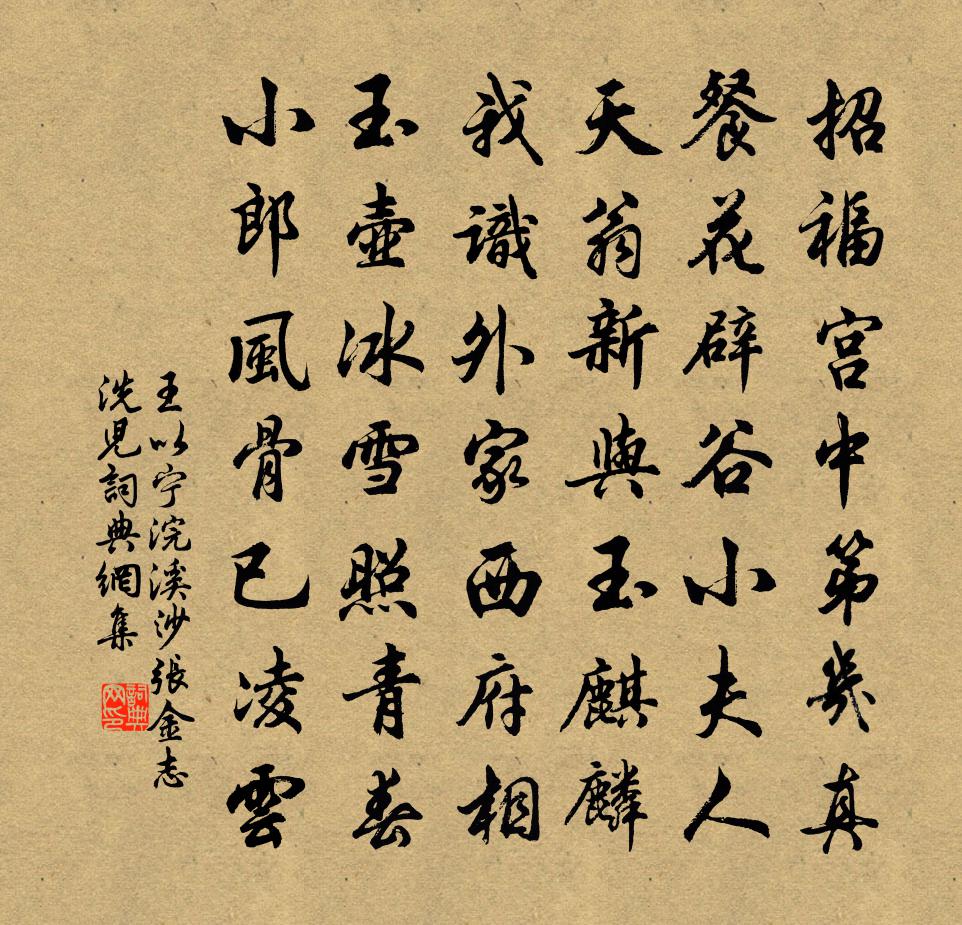 招福宫中第幾真
餐花辟谷小夫人
天翁新與玉麒麟
我識外家西府相
玉壺冰雪照青春
小郎風骨已凌雲
王以宁浣溪沙張金志
洗兒詞典網集
詞典网印